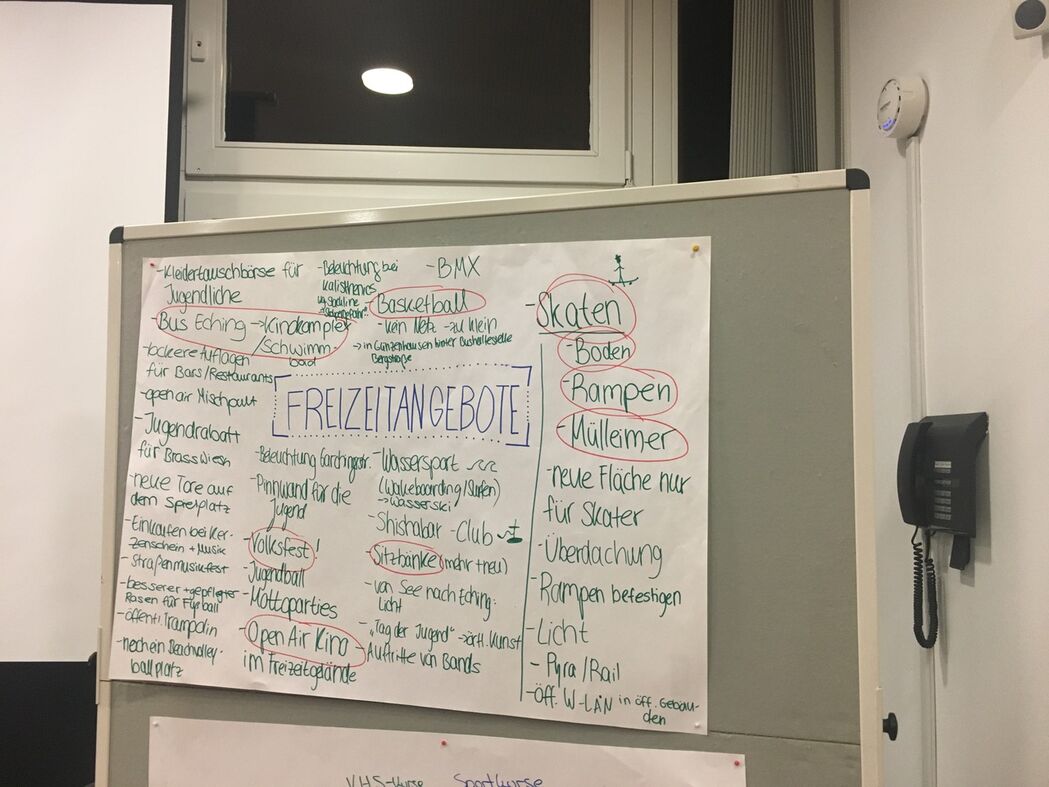 -Kleidertauschbörse für
Jugendliche
-Bus Eching →Kinokomplex
/Schwimm-
bad
-lockere Auflagen
für Bars/Restaurants
-open air Mischpult
-Jugendrabatt
für Brass Wiesn
-neue Tore auf
dem Spielplatz
-Einkaufen bei Ker-
zenschein + Musik
-Straßenmusikfest
-besserer + gepflegter
Rasen für Fußball
-öffentl. Trampolin
-noch ein Beachvolley-
ballplatz
-Beleuchtung bei
Kalisthenics
-BMX
-Basketball
-kein Netz →zu klein
→ in Günzenhausen hinter Bushaltestelle
Bergstraße
FREIZEITANGEBOTE
-Beleuchtung Garchingerstr.
-Pinnwand für die
Jugend
-Volksfest!
-Jugendball
-Mottoparties
-Open Air Kino
im Freizeitgelände
-Wassersport
(Wakeboarding/Surfen)
→Wasserski
-Shishabar -Club
-Sitzbänke (mehr + neu)
-von See nach Eching:
Licht
-„Tag der Jugend" →örtl. Kunst
-Auftritte von Bands
-Skaten
-Boden
-Rampen
-Mülleimer
-neue Fläche nur
für Skater
-Überdachung
-Rampen befestigen
-Licht
-Pyra/Rail
-öff. W-LAN in öff. Gebäu-
den
VHS-Kurse Sportkurse